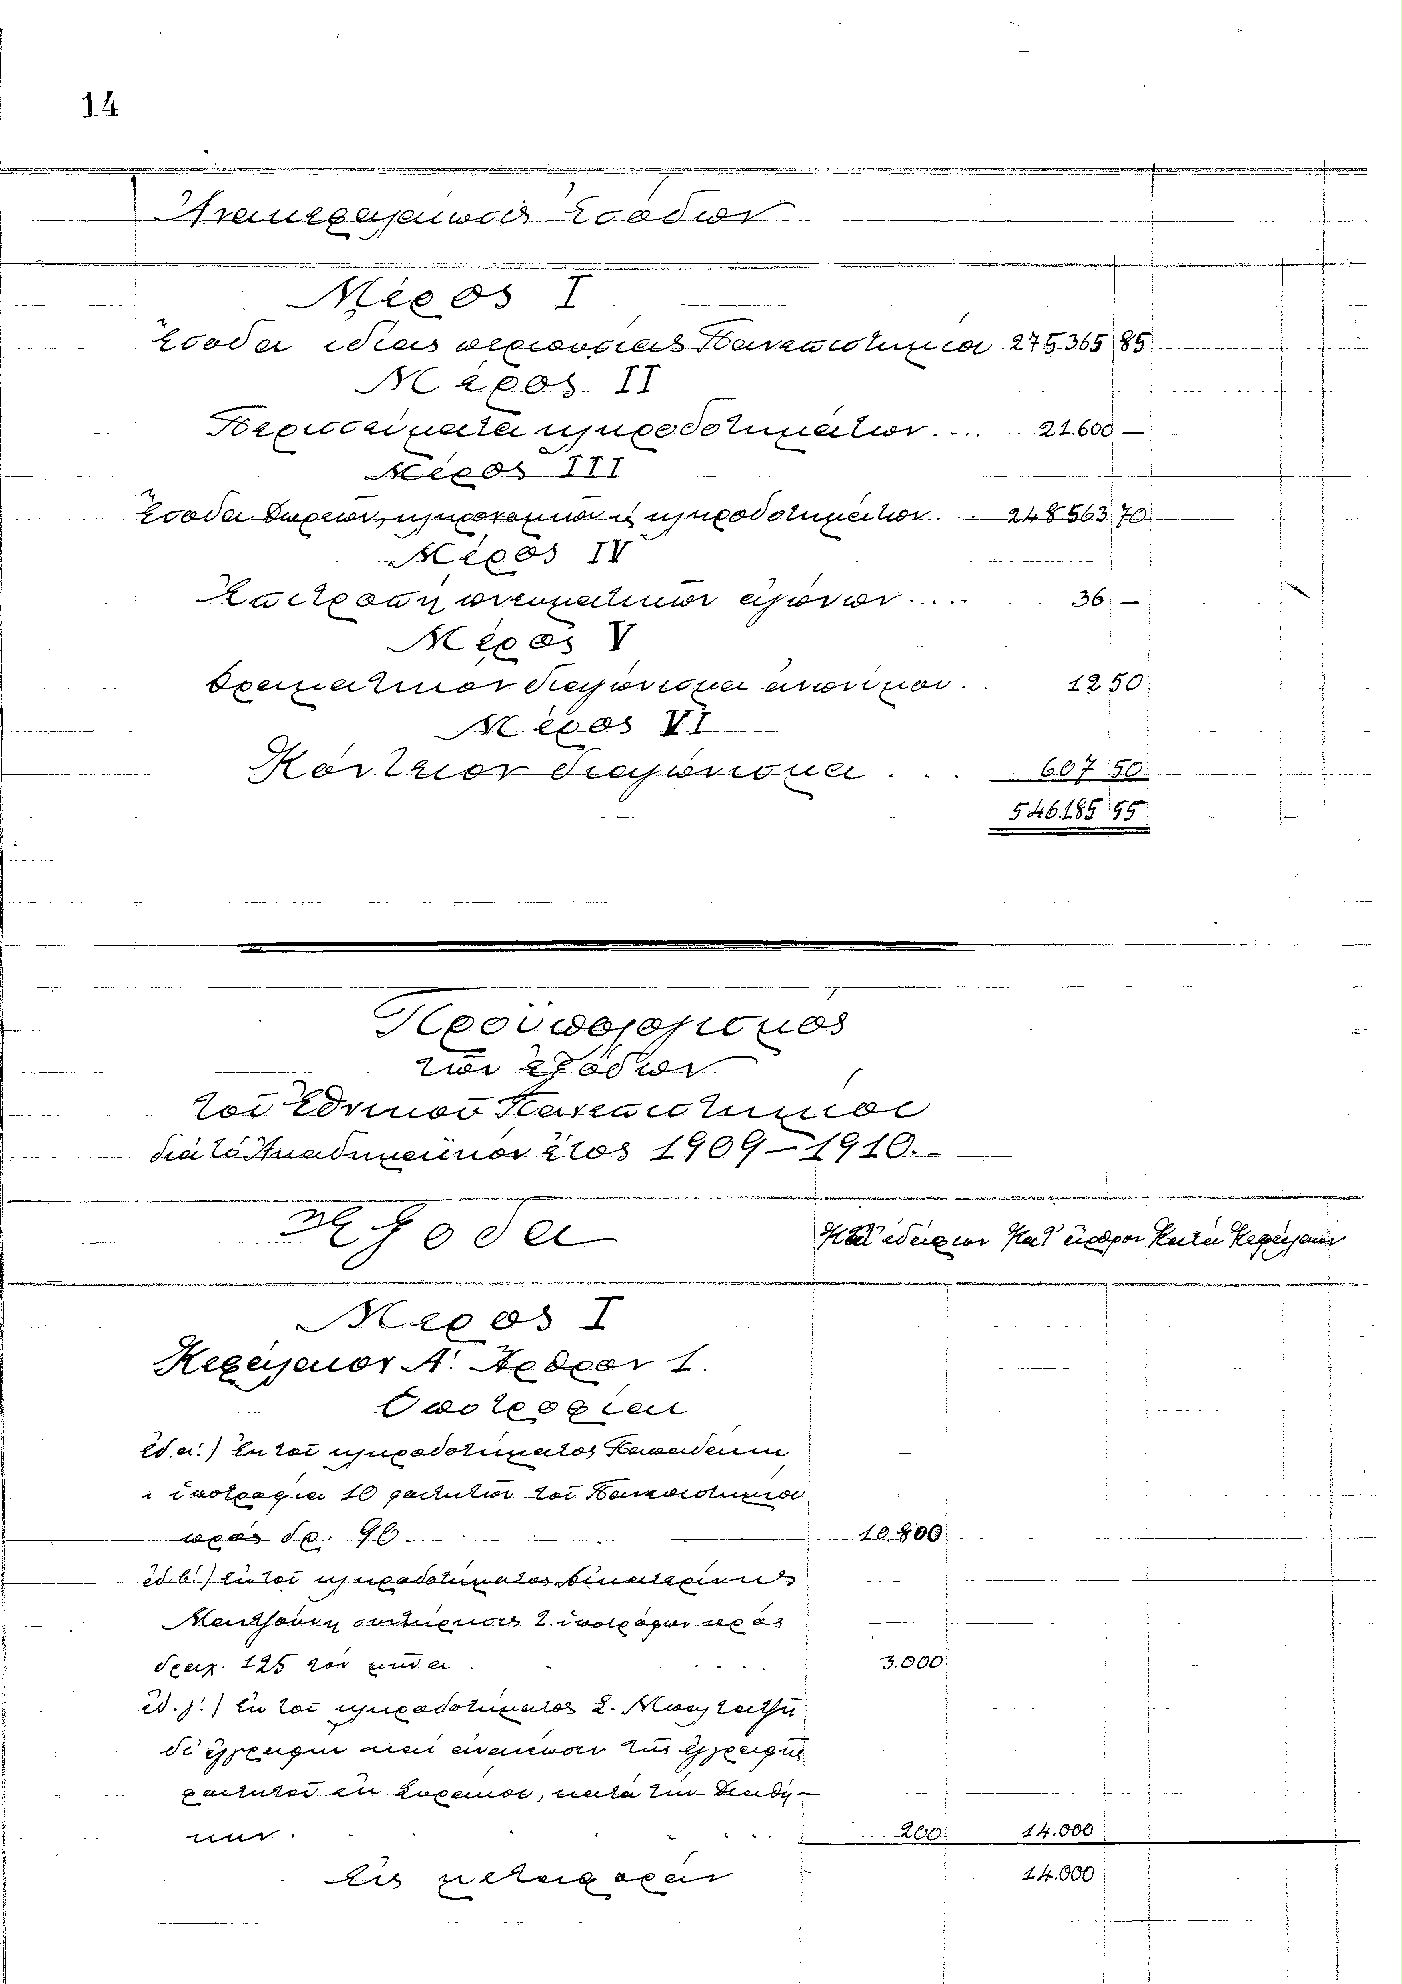 14
Ἀνακεφαλαίωσις Ἐσόδων
Μέρος I
Ἔσοδα ἰδίας περιουσίας Πανεπιστημίου 275.365 85
Μέρος II
Περισσεύματα κληροδοτημάτων.... 21.600 —
Μέρος III
Ἔσοδα δωρεῶν, κληρονομιῶν κ κληροδοτημάτων... 248.563 70
Μέρος IV
Ἐπιτροπὴ πνευματικῶν ἀγώνων.... 36 —
Μέρος V
Δραματικὸν διαγώνισμα ἀνωνύμου.. 12 50
Μέρος VI
Κόντειον διαγώνισμα... 607 50
546.185 55
Προϋπολογισμὸς
τῶν ἐξόδων
τοῦ Ἐθνικοῦ Πανεπιστημίου
διὰ τὸ Ἀκαδημαϊκὸν ἔτος 1909-1910.
Ἔξοδα Κατ' ἐδάφιον Κατ' ἄρθρον Κατὰ Κεφάλαιον
Μέρος I
Κεφάλαιον Α'. Ἄρθρον 1.
Ὑποτροφίαι
ἐδ. α'.) Ἐκ τοῦ κληροδοτήματος Παπαδάκη
ὑποτροφία 10 φοιτητῶν τοῦ Πανεπιστημίου
πρὸς δρ. 90 10.800
ἐδ. β'.) Ἐκ τοῦ κληροδοτήματος Αἰκατερίνης
συντήρησις 2 ὑποτρόφων πρὸς
δραχ. 125 τὸν μῆνα 3.000
ἐδ. γ'.) Ἐκ τοῦ κληροδοτήματος Σ.
δι' ἐγγραφὴν καὶ ἀνανέωσιν τῆς ἐγγραφῆς
φοιτητοῦ ἐκ κατὰ τὴν Διαθή-
κην. 200 14.000
Εἰς μεταφορὰν 14.000